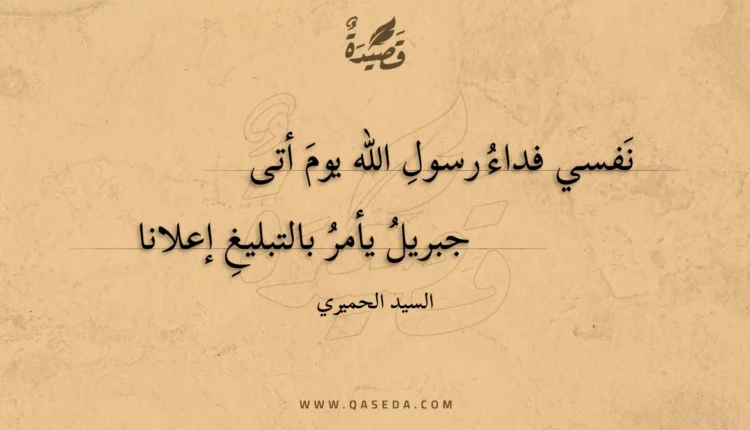 قَصِيْدَةٌ
نَفسي فداءُ رسولِ الله يومَ أتى
جبريلُ يأمرُ بالتبليغِ إعلانا
السيد الحميري
WWW.QASEDA.COM